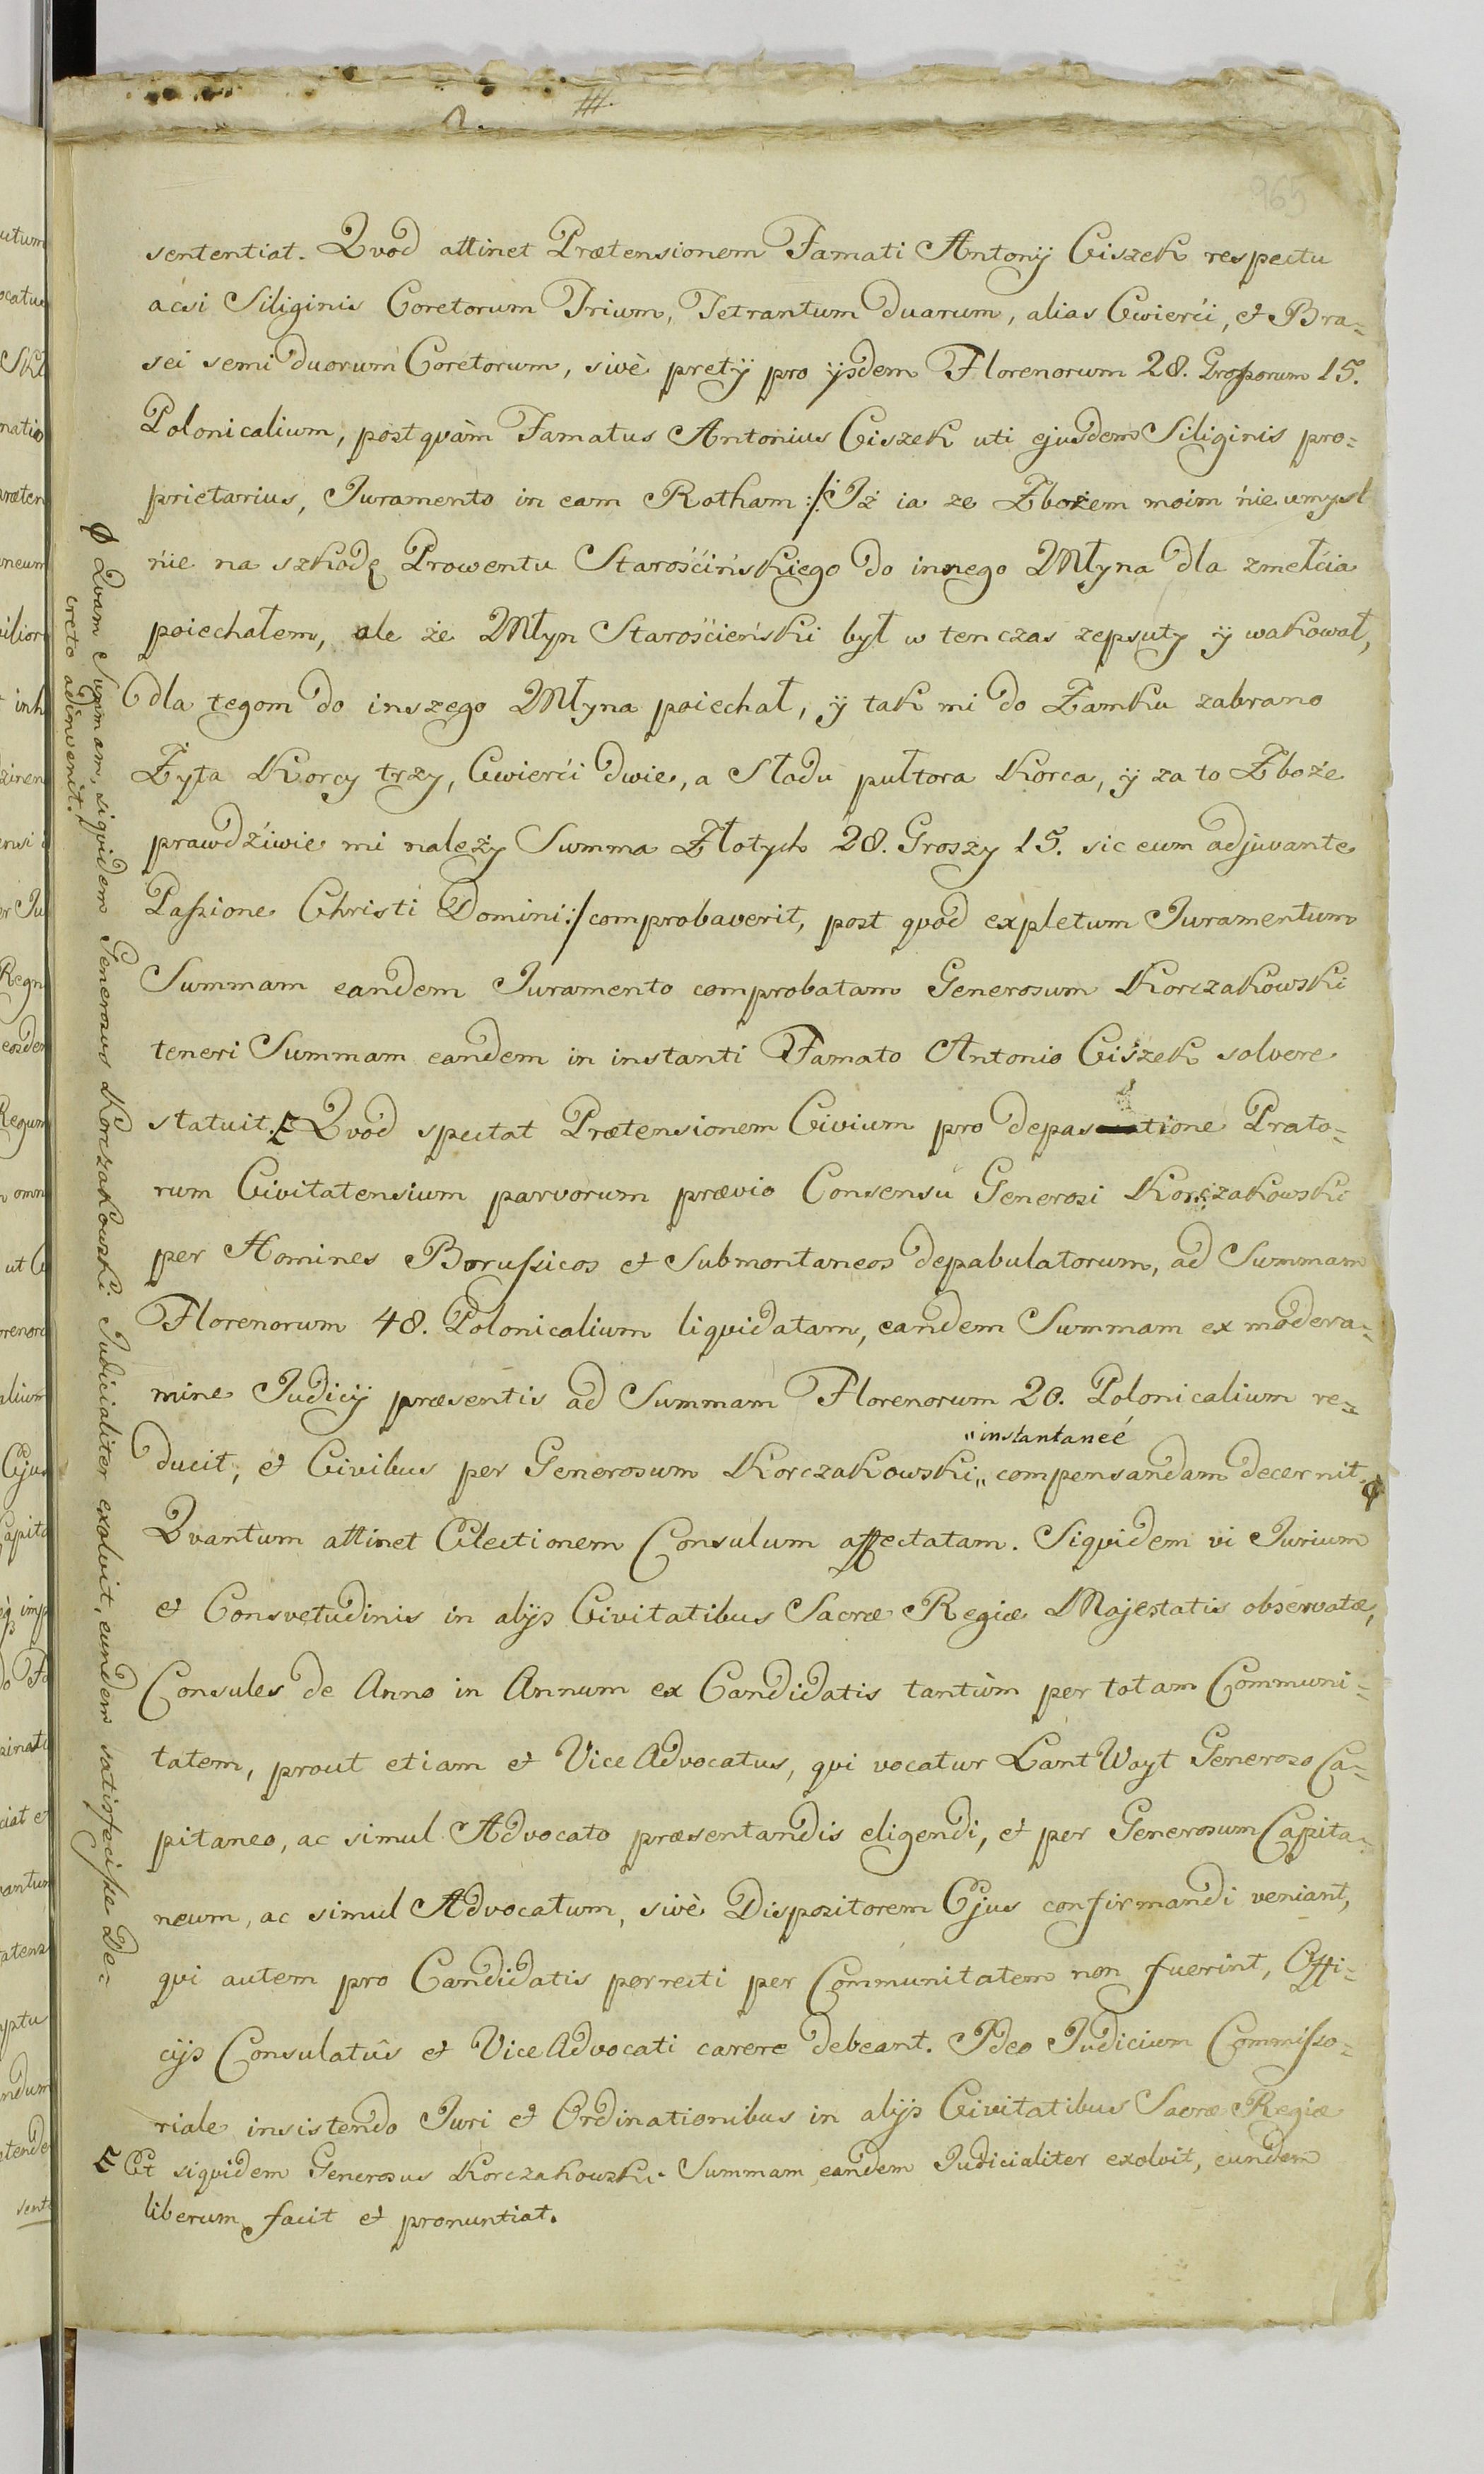 965
sententiat. Qvod attinet Prætensionem Famati Antonij Ciszek respectu
acsi Siliginis Coretorum Trium, Tetrantum duarum, alias Cwierći, et Bra=
sei semi duorum Coretorum, sivè pretij pro ijsdem Florenorum 28. Grossorum 15.
Polonicalium, postqvàm Famatus Antonius Ciszek uti ejusdem Siliginis pro=
prietarius, Juramento in eam Rotham :/: Iż ia ze Zbożem moim nie umysl
nie na szkodę Prowentu Starośćińskiego do innego Młyna dla zmełćia
poiechałem, ale że Młyn Starośćieński był w ten czas zepsuty ÿ wakował,
dla tegom do inszego Młyna poiechał, ÿ tak mi do Zamku zabrano
Żyta Korcy trzy, Cwierći dwie, a Słodu pułtora Korca, ÿ za to Zboże
prawdźiwie mi należy Summa Złotych 28. Groszy 15. sic eum adjuvante
Passione Christi Domini :/ comprobaverit, post qvod expletum Juramentum
Summam eandem Juramento comprobatam Generosum Korczakowski
teneri Summam eandem in instanti Famato Antonio Ciszek solvere
statuit. E Qvod spectat Prætensionem Civium pro depastione Prato=
rum Civitatensium parvorum prævio Consensu Generosi Korczakowski
per Homines Borussicos et Submontaneos depabulatorum, ad Summam
Florenorum 48. Polonicalium liqvidatam, eandem Summam ex modera=
mine Judicij præsentis ad Summam Florenorum 20. Polonicalium re=
"instantaneé
ducit, et Civibus per Generosum Korczakowski „ compensandam decernit. ϕ
Qvantum attinet Electionem Consulum affectatam. Siqvidem vi Jurium
et Consvetudinis in alijs Civitatibus Sacræ Regiæ Majestatis observatæ,
Consules de Anno in Annum ex Candidatis tantùm per totam Communi=
tatem, prout etiam et Vice Advocatus, qvi vocatur Lant Woyt Generoso Ca=
pitaneo, ac simul Advocato præsentandis eligendi, et per Generosum Capita=
neum, ac simul Advocatum, sivè Dispozitorem Ejus confirmandi veniant,
qvi autem pro Candidatis porrecti per Communitatem non fuerint, Offi=
cijs Consulatûs et Vice Advocati carere debeant. Ideo Judicium Commisso=
riale insistendo Juri et Ordinationibus in alijs Civitatibus Sacræ Regiæ
E Et siqvidem Generosus Korczakowski Summam eandem Judicialiter exolvit, eundem
liberum facit et pronuntiat.
ϕ Qvam Summam, siqvidem Generosus Korczakowski Judicialiter exolvit, eundem satisfecisse De=
creto adinvenit.